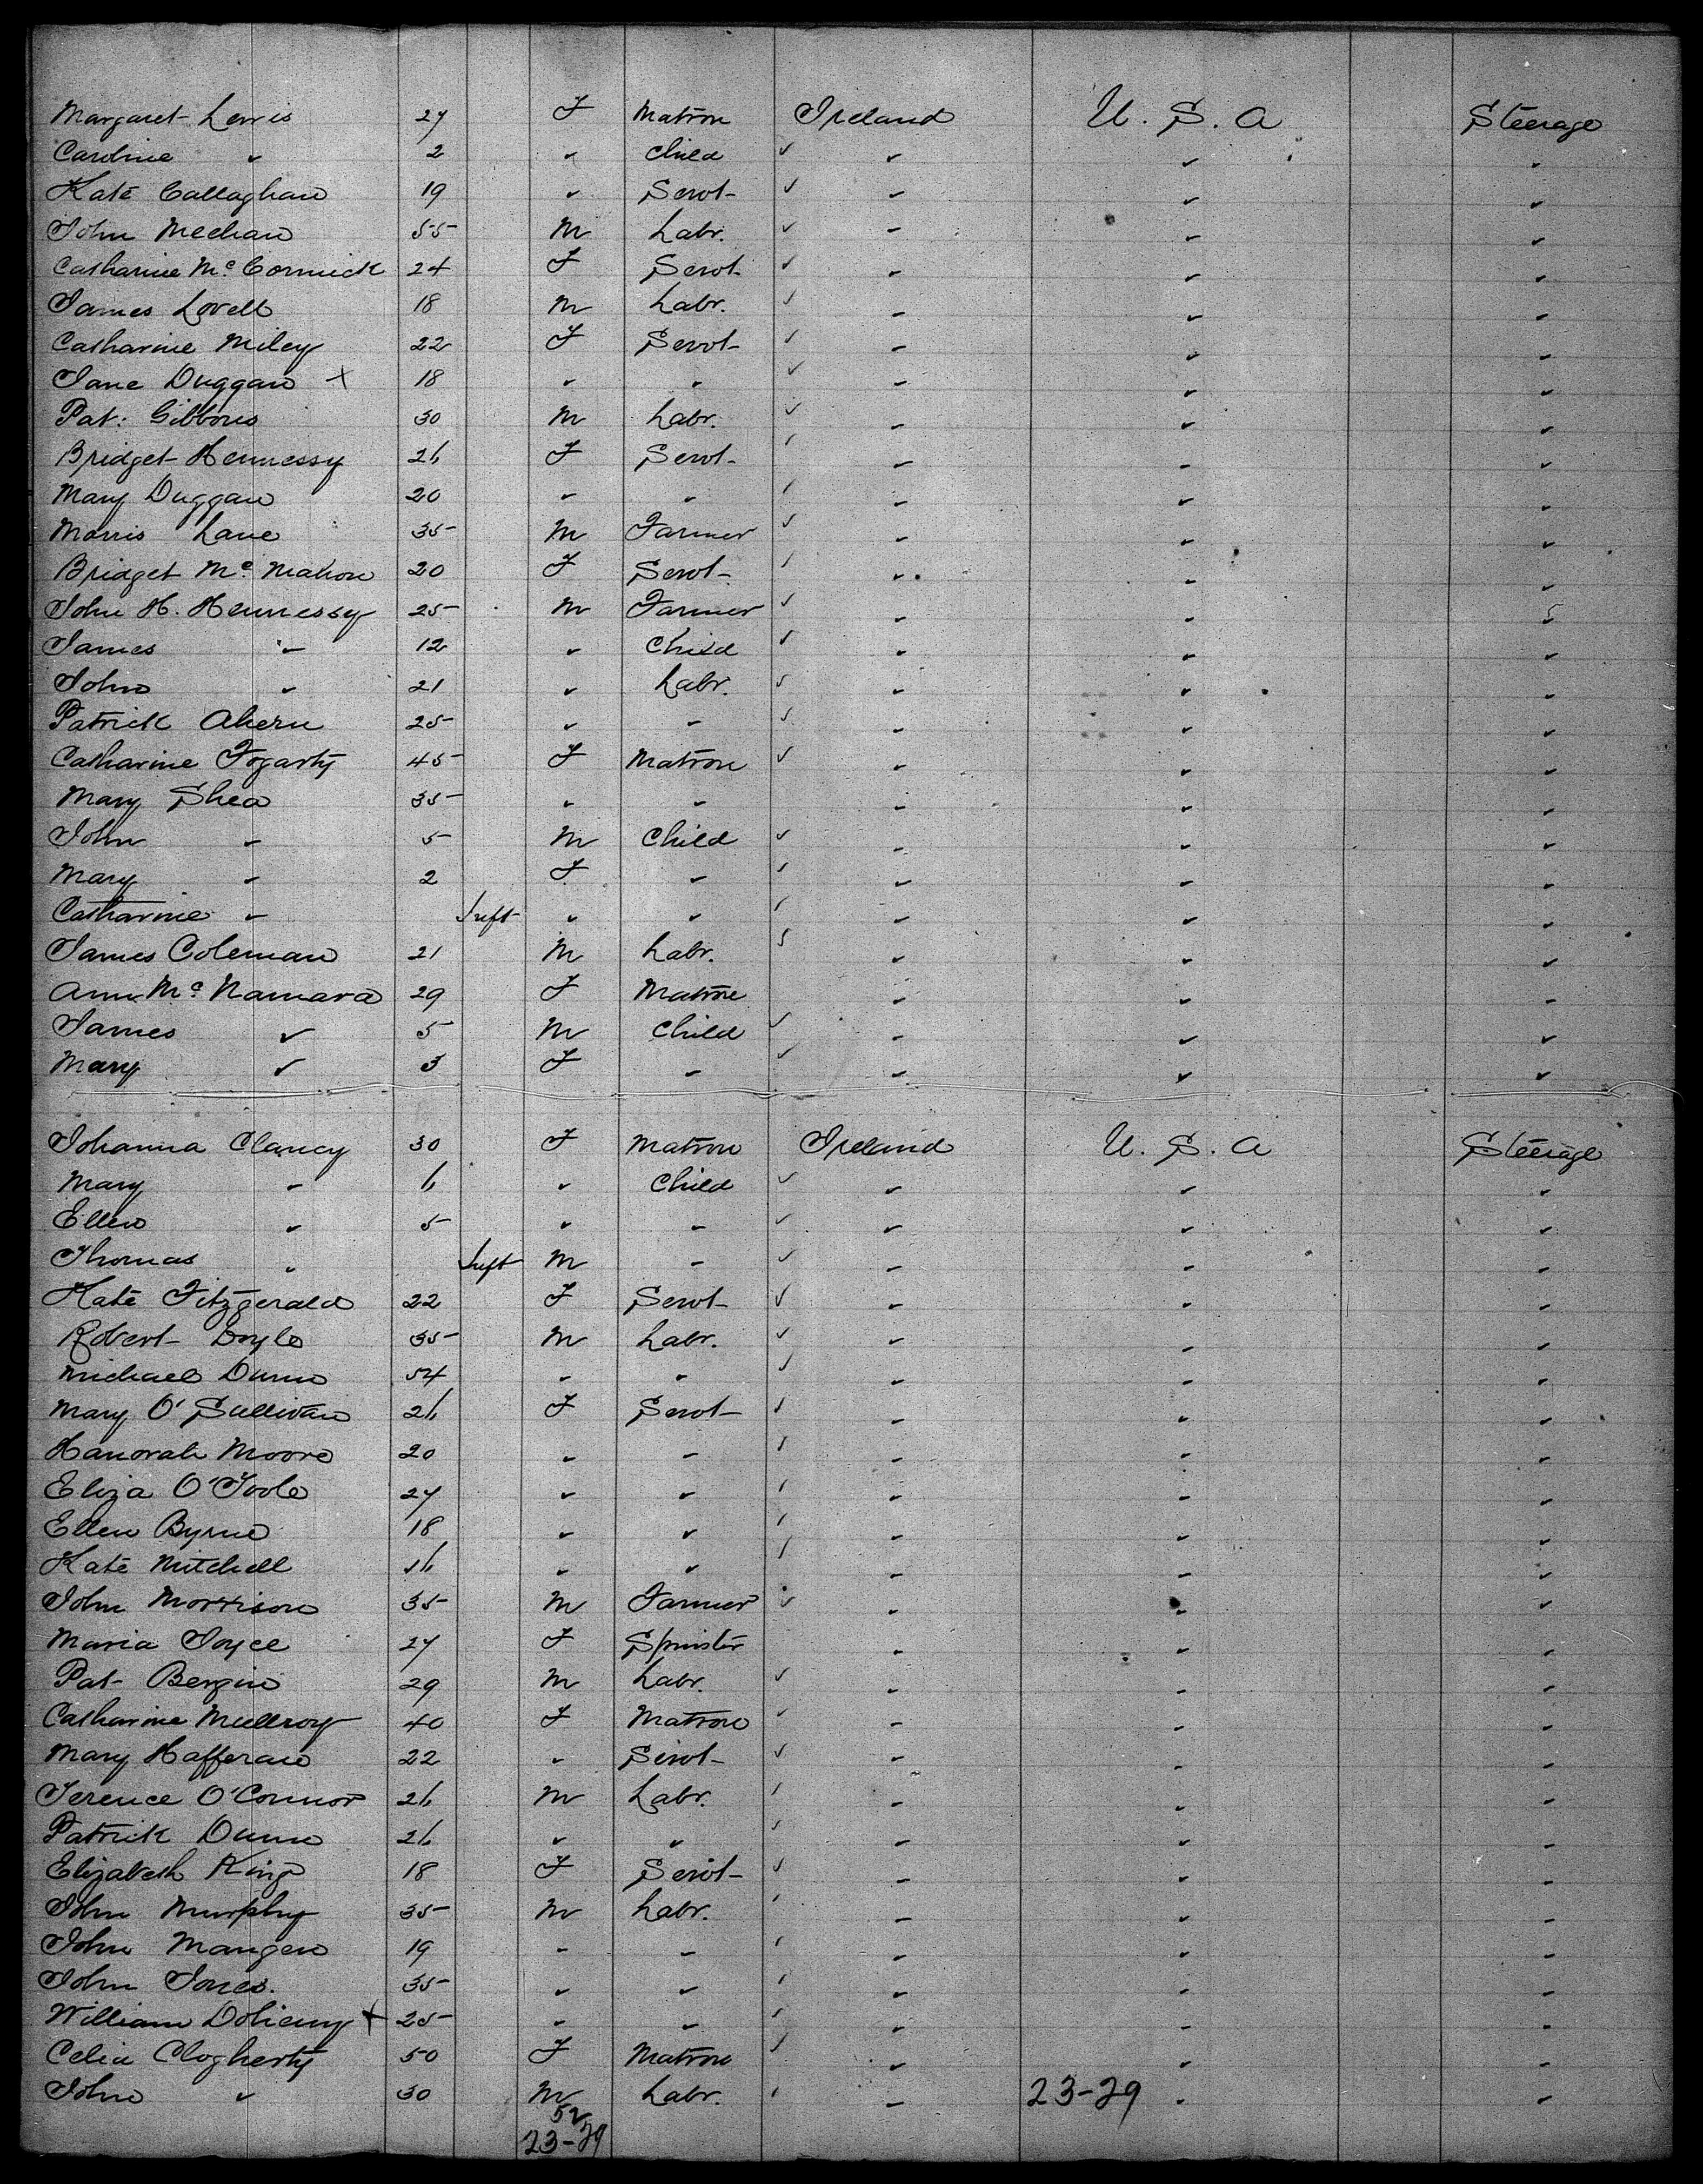 Margaret Lewis 27 F Matron Ireland U. S. A Steerage
Caroline " 2 " Child " " "
Kate Callaghan 19 " Servt " " "
John Meehan 55 M Labr. " " "
Catharine Mc Cormick 24 F Servt " " "
James Lovell 18 M Labr. " " "
Catharine Miley 22 F Servt " " "
Jane Duggan x 18 " " " " "
Pat: Gibbons 30 M Labr. " " "
Bridget Hennessy 26 F Servt " " "
Mary Duggan 20 " " " " "
Morris Lane 35 M Farmer " " "
Bridget Mc Mahon 20 F Servt " " "
John H. Hennessy 25 M Farmer " " "
James " 12 " Child " " "
John " 21 " Labr. " " "
Patrick Ahern 25 " " " " "
Catharine Fogarty 45 F Matron " " "
Mary Shea 35 " " " " "
John " 5 M Child " " "
Mary " 2 F " " " "
Catharine " Inft " " " " "
James Coleman 21 M Labr. " " "
Ann Mc Namara 29 F Matron " " "
James " 5 M Child " " "
Mary " 3 F " " " "
Johanna Clancy 30 F Matron Ireland U. S. A Steerage
Mary " 6 " Child " " "
Ellen " 5 " " " " "
Thomas " Inft M " " " "
Kate Fitzgerald 22 F Servt " " "
Robert Doyle 35 M Labr. " " "
Michael Dunn 54 " " " " "
Mary O'Sullivan 26 F Servt " " "
Hanorah Moore 20 " " " " "
Eliza O'Toole 27 " " " " "
Ellen Byrne 18 " " " " "
Kate Mitchell 16 " " " " "
John Morrison 35 M Farmer " " "
Maria Joyce 27 F Spinster " " "
Pat Bergin 29 M Labr. " " "
Catharine Mullroy 40 F Matron " " "
Mary Hafferan 22 " Servt " " "
Terence O'Connor 26 M Labr. " " "
Patrick Dunn 26 " " " " "
Elizabeth King 18 F Servt " " "
John Murphy 35 M Labr. " " "
John Mangen 19 " " " " "
John Jones. 35 " " " " "
William Doheny x 25 " " " " "
Celia Clogherty 50 F Matron " " "
John " 30 M Labr. " 23-29 " "
52
23-29